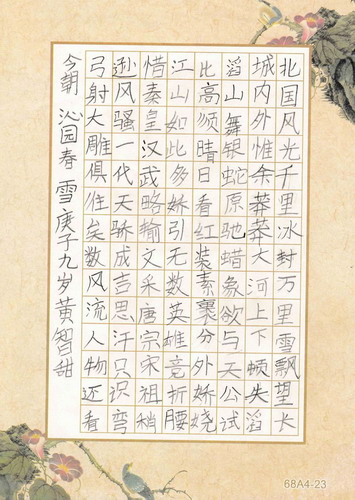 北国风光千里冰封万里雪飘望长
城内外惟余莽莽大河上下顿失滔
滔山舞银蛇原驰蜡象欲与天公试
比高须晴日看红装素裹分外娇娆
江山如此多娇引无数英雄竞折腰
惜秦皇汉武略输文采唐宗宋祖稍
逊风骚一代天骄成吉思汗只识弯
弓射大雕俱往矣数风流人物还看
今朝 沁园春 雪 庚子九岁黄智甜
68A4-23